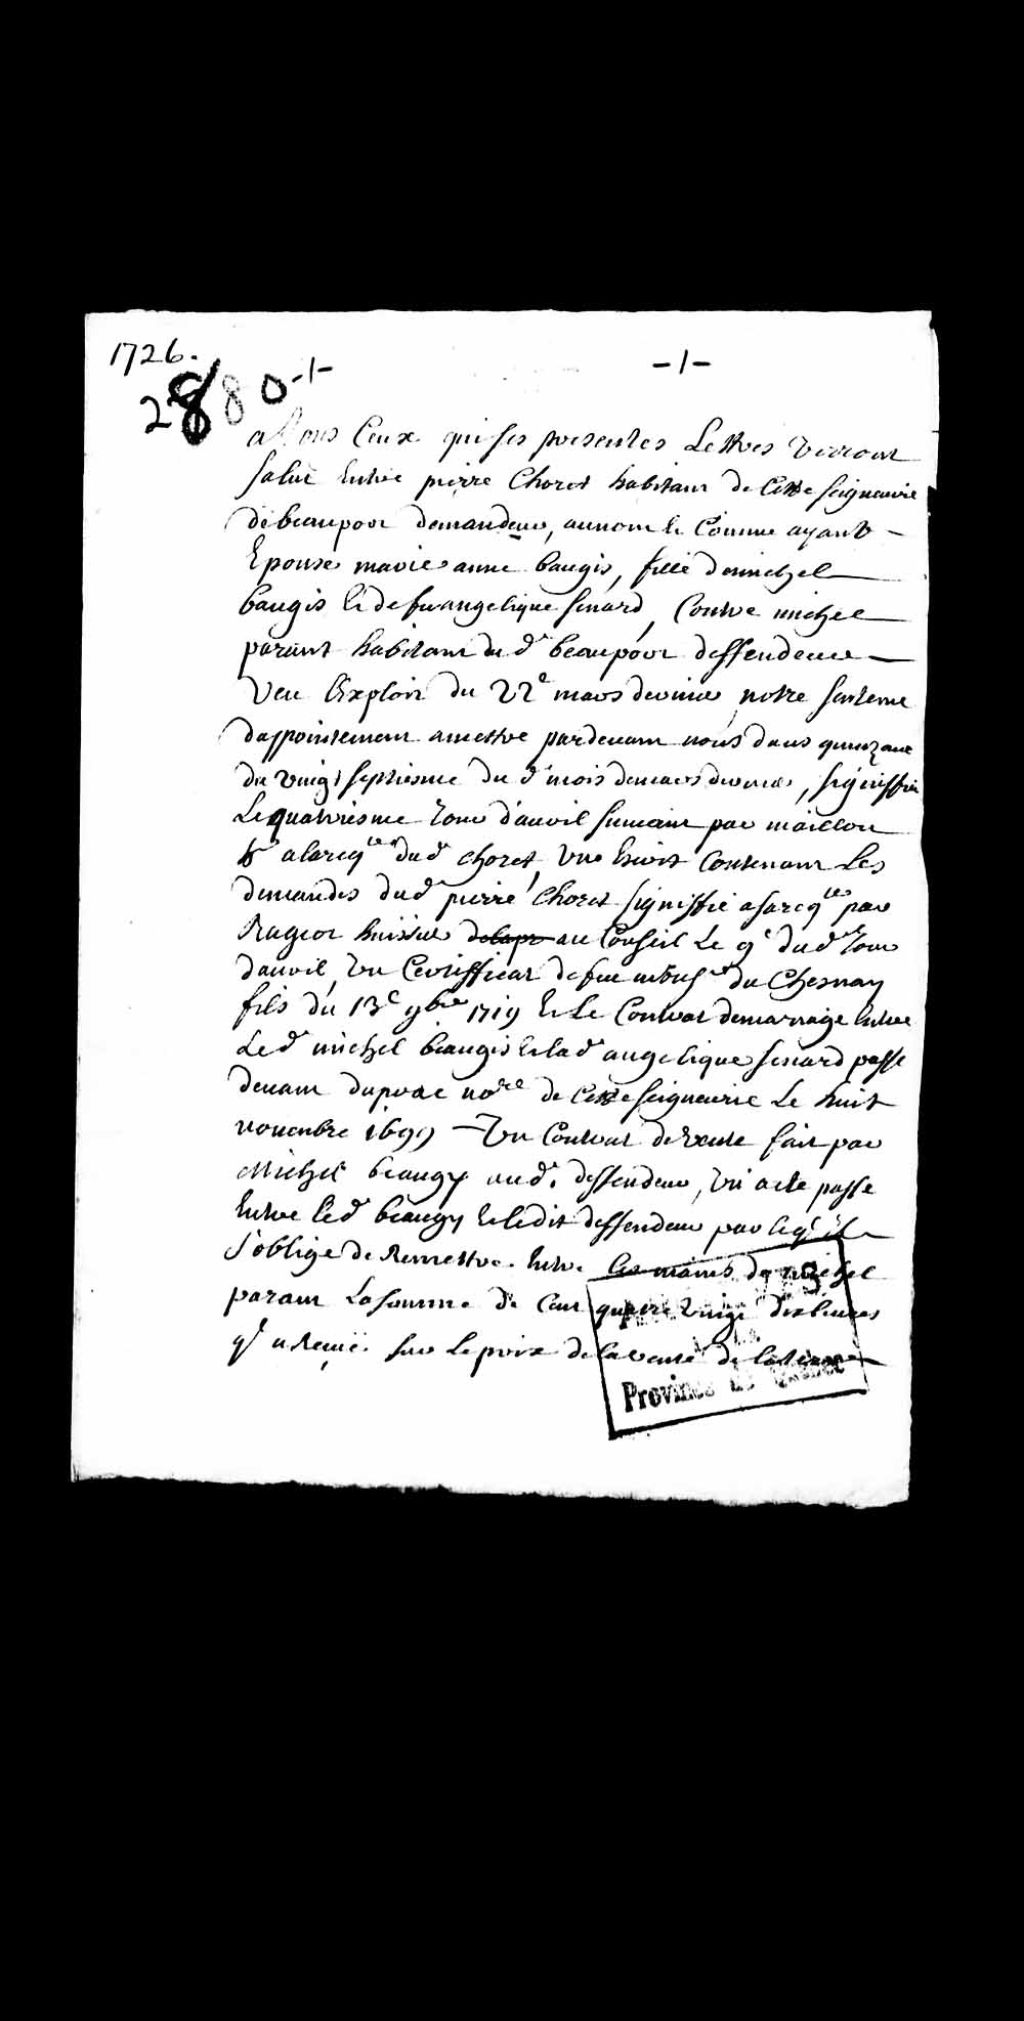 1726.
2880-1-
-1-
a tous Ceux qui ses presentes Lettres verront
salut Entre pierre Choret habitant de Cette seigneurie
de beauport demandeur, aunom & Comme ayant
Epousé marie anne baugis, fille de michel
baugis & de fu angelique senard, Contre michel
parant habitant du d. beauport deffendeur
Veu L'Exploit du 22e mars dernier, notre sentence
dappointement amettre pardevant nous dans quinzaine
du vingt septiesme du d. mois demars dernier, signiffié
Le quatriesme Jour d'avril suivant par maillou
alareq.te dud. choret, Un Escrit Contenant Les
demandes dud. pierre Choret signiffié asareq.te par
Rageot huissier au Conseil Le 9e dud. Jour
davril, Un Certifficat de feu du Chesnay
fils du 13e 9bre 1719 & Le Contrat demariage Entre
Led. michel beaugis & lad. angelique senard passé
devant duprac no.re de Cette seigneurie Le huit
novembre 1699 Un Contrat de Vente fait par
Michel beaugy aud. deffendeur, Un acte passé
Entre led. beaugy & ledit deffendeur par leq.l il
s'oblige de Remettre Entre les mains de michel
parant La somme de Cent quatre vingt dix livres
q.l a Reçüe sur le prix de la vente de la terre
Province de Québec